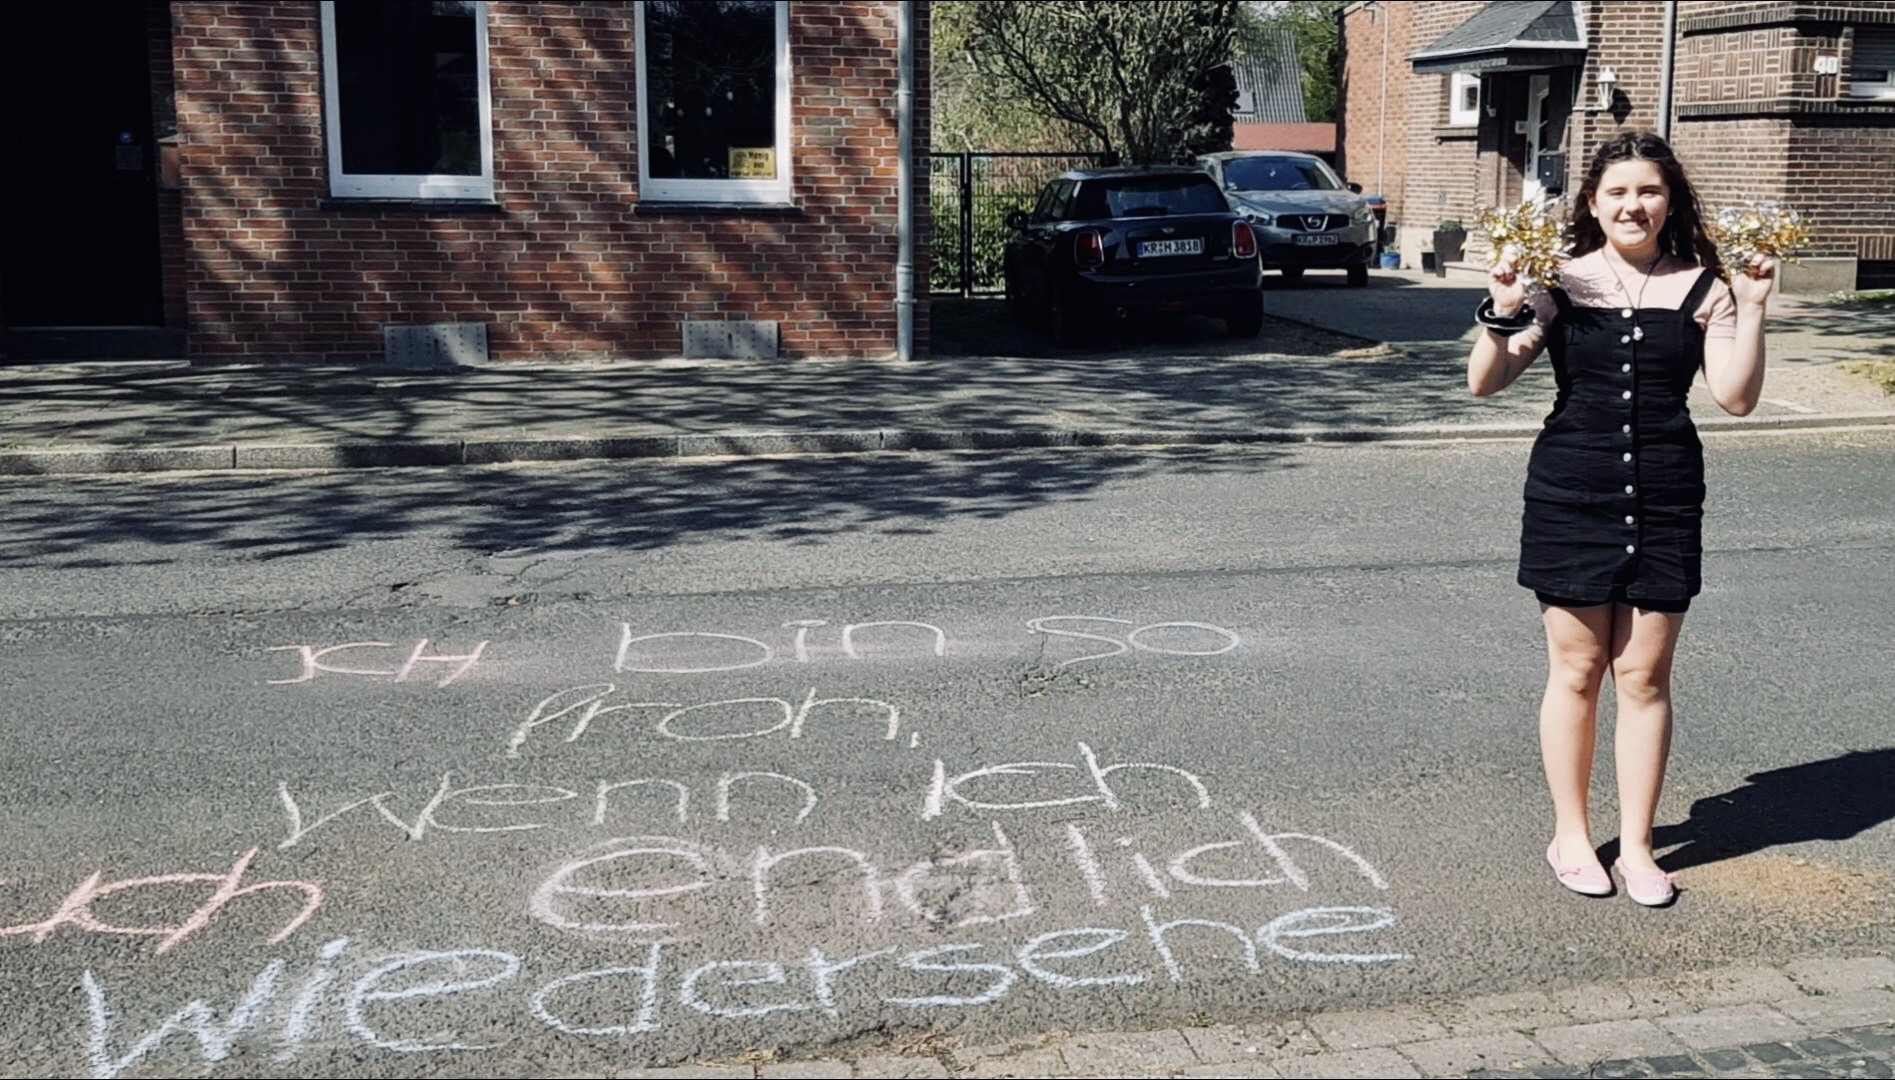 ICH bin so
froh,
wenn ich
ich endlich
wiedersehe
KR H 3818
40
Honig